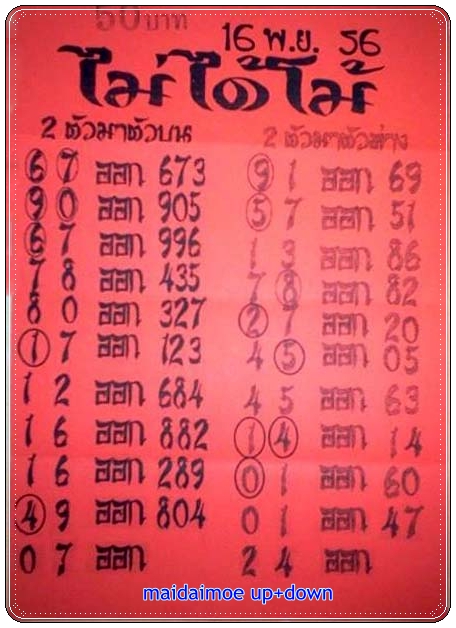 50 บาท
16 พ.ย. 56
ไม่ได้โม้
2 ตัวมาตัวบน
2 ตัวมาตัวล่าง
6 7 ออก 673
9 1 ออก 69
9 0 ออก 905
5 7 ออก 51
6 7 ออก 996
1 3 ออก 86
7 8 ออก 435
7 8 ออก 82
8 0 ออก 327
2 7 ออก 20
1 7 ออก 123
4 5 ออก 05
1 2 ออก 684
4 5 ออก 63
1 6 ออก 882
1 4 ออก 14
1 6 ออก 289
0 1 ออก 60
4 9 ออก 804
0 1 ออก 47
0 7 ออก
2 4 ออก
maidaimoe up+down